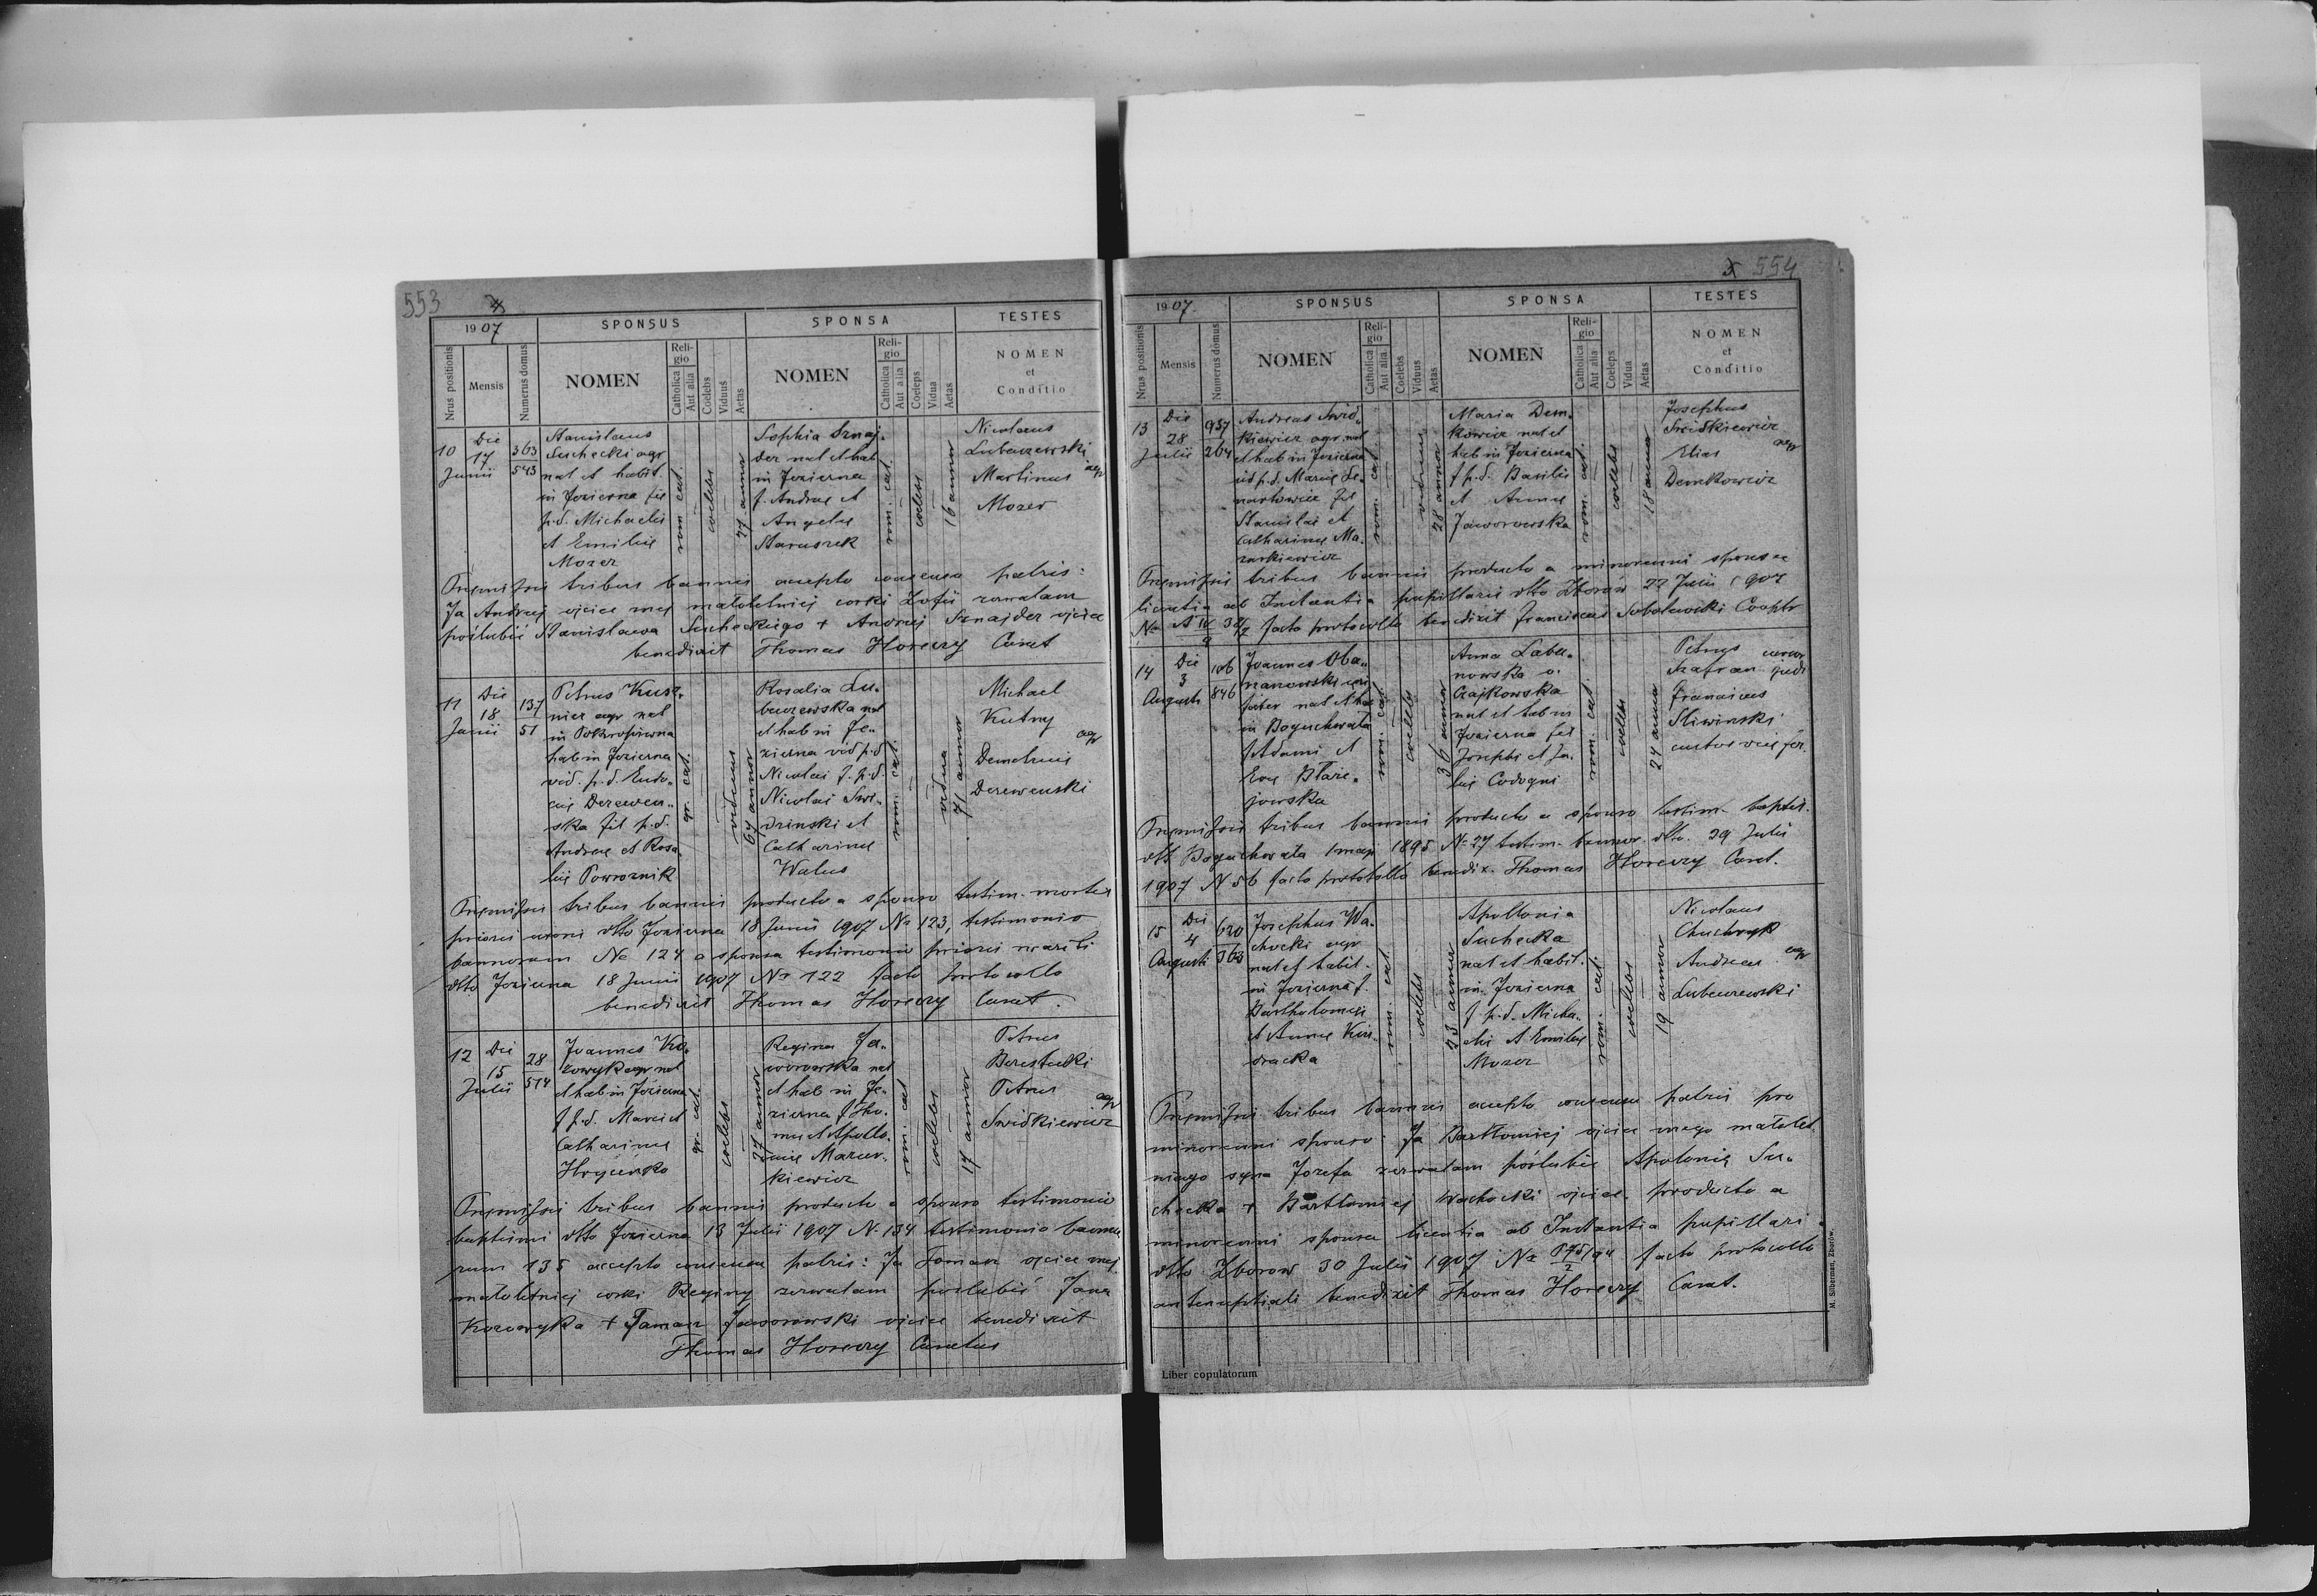 553
1907
SPONSUS
SPONSA
TESTES
Nrus positionis
Mensis
Numerus domus
NOMEN
Religio
Catholica
Aut alia
Coelebs
Viduus
Aetas
NOMEN
Religio
Catholica
Aut alia
Coeleps
Vidua
Aetas
NOMEN
et
Conditio
10
Die
17
Junii
363
543
Stanislaus
Suchecki agr
nat et habit.
in Jezierna fil
p.d. Michaelis
et Emiliae
Mozer
rom. cat.
coelebs
27 annor
Sophia Sznaj-
der nat et hab
in Jezierna
f. Andreae et
Angelae
Staruszek
rom. cat.
coelebs
16 annor
Nicolaus
Lubaczewski
Martinus agr
Mozer
Praemissis tribus bannis accepto consensu patris:
Ja Andrzej ojciec mej małoletniej corki Zofii zezwalam
poślubić Stanisława Sucheckiego + Andrzej Sznajder ojciec
benedixit Thomas Horeczy Curat
11
Die
18
Junii
137
51
Petrus Kusz-
nier agr nat
in
hab in Jezierna
vid. p.d. Eudo-
ciae Derewen-
ska fil p.d.
Andreae et Rosa-
liae Powroznik
gr. cat.
viduus
67 annor
Rosalia Lu-
baczewska nat
et hab in Je-
zierna vid p.d.
Nicolai f. p.d.
Nicolai Swi-
drinski et
Catharinae
Walus
rom. cat.
vidua
71 annor
Michael
Kutny
Demetrius agr
Derewenski
Praemissis tribus bannis producto a sponso testim. mortis
prioris uxoris dtto Jezierna 18 Junii 1907 No 123, testimonio
bannorum No 124 a sponsa testimonio prioris mariti
dtto Jezierna 18 Junii 1907 No 122 facto protocollo
benedixit Thomas Horeczy Curat.
12
Die
15
Julii
28
514
Joannes Ko-
zowyk agr nat
et hab in Jezierna
f p.d. Marci et
Catharinae
Hrycenko
gr. cat.
coelebs
27 annor
Regina Ja-
worowska nat
et hab in Je-
zierna f Tho-
mae et Apollo-
niae Mazur-
kiewicz
rom. cat
coelebs
17 annor
Petrus
Berestecki
Petrus agr
Swidkiewicz
Praemissis tribus bannis producto a sponso testimonio
baptismi dtto Jezierna 13 Julii 1907 N. 134 testimonio banno-
rum 135 accepto consensu patris: Ja Tomasz ojciec mej
małoletniej corki Reginy zezwalam poslubić Jana
Kozowyka + Tomasz Jaworowski ojciec benedixit
Thomas Horeczy Curatus
554
1907
SPONSUS
SPONSA
TESTES
Nrus positionis
Mensis
Numerus domus
NOMEN
Religio
Catholica
Aut alia
Coelebs
Viduus
Aetas
NOMEN
Religio
Catholica
Aut alia
Coeleps
Vidua
Aetas
NOMEN
et
Conditio
13
Die
28
Julii
957
264
Andreas Swid-
kiewicz agr. nat
et hab in Jezierna
vid p.d. Mariae Le-
nartowicz fil
Stanislai et
Catharinae Ma-
zurkiewicz
rom. cat.
viduus
28 annor
Maria Dem-
kowicz nat et
hab in Jezierna
f p.d. Basilii
et Annae
Jaworowska
rom. cat.
coelebs
18 annor
Josephus
Swidkiewicz
Elias agr
Demkowicz
Praemissis tribus bannis producto a minorenni sponsae
licentia ab Instantia pupillari dtto Zborów 22 Julii 1907
No facto protocollo benedixit Franciscus Sobolewski Cooptr
14
Die
3
Augusti
106
846
Joannes Oba-
rzanowski
nat et hab
in Boguchwała
f Adami et
Evae Błaże-
jowska
rom. cat.
coelebs
36 annor
Anna Labu-
nowska v.
Czajkowska
nat et hab in
Jezierna fil
Josephi et Ju-
liae Codogni
rom. cat.
coelebs
24 annor
Petrus
Szafran
Franciscus
Sliwinski
custos viae fer.
Praemissis tribus bannis producto a sponso testim. baptis.
dtt Boguchwała 1 maji 1895 No 27 testim. bannor. dtto. 29 Julii
1907 N 56 facto protokollo benedix. Thomas Horeczy Curat.
15
Die
4
Augusti
620
363
Josephus Wa-
chocki agr
nat et habit.
in Jezierna f.
Bartholomaei
et Annae Kon-
dracka
rom. cat.
coelebs
23 annor
Apollonia
Suchecka
nat et habit.
in Jezierna
f. p.d. Micha-
elis et Emiliae
Mozer
rom. cat.
coelebs
19 annor
Nicolaus
Chuchryk
Andreas agr
Lubaczewski
Praemissis tribus bannis accepto consensu patris pro
minorenni sponso: Ja Bartłomiej ojciec mego małolet-
niego syna Jozefa zezwalam poślubić Apolonię Su-
checka + Bartłomiej Wachocki ojciec. producto a
minorenni sponsa licentia ab Instantia pupillari
dtto Zborow 30 Julii 1907 No facto protocollo
antenuptiali benedixit Thomas Horeczy Curat.
Liber copulatorum
M. Silberman, Zborów.